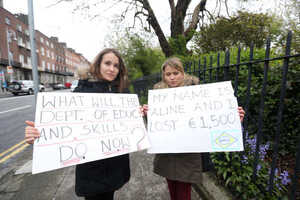 WHAT WILL THE
DEPT. OF EDUC
AND SKILLS
DO NOW?
MY NAME IS
ALINE AND I
LOST €1,500